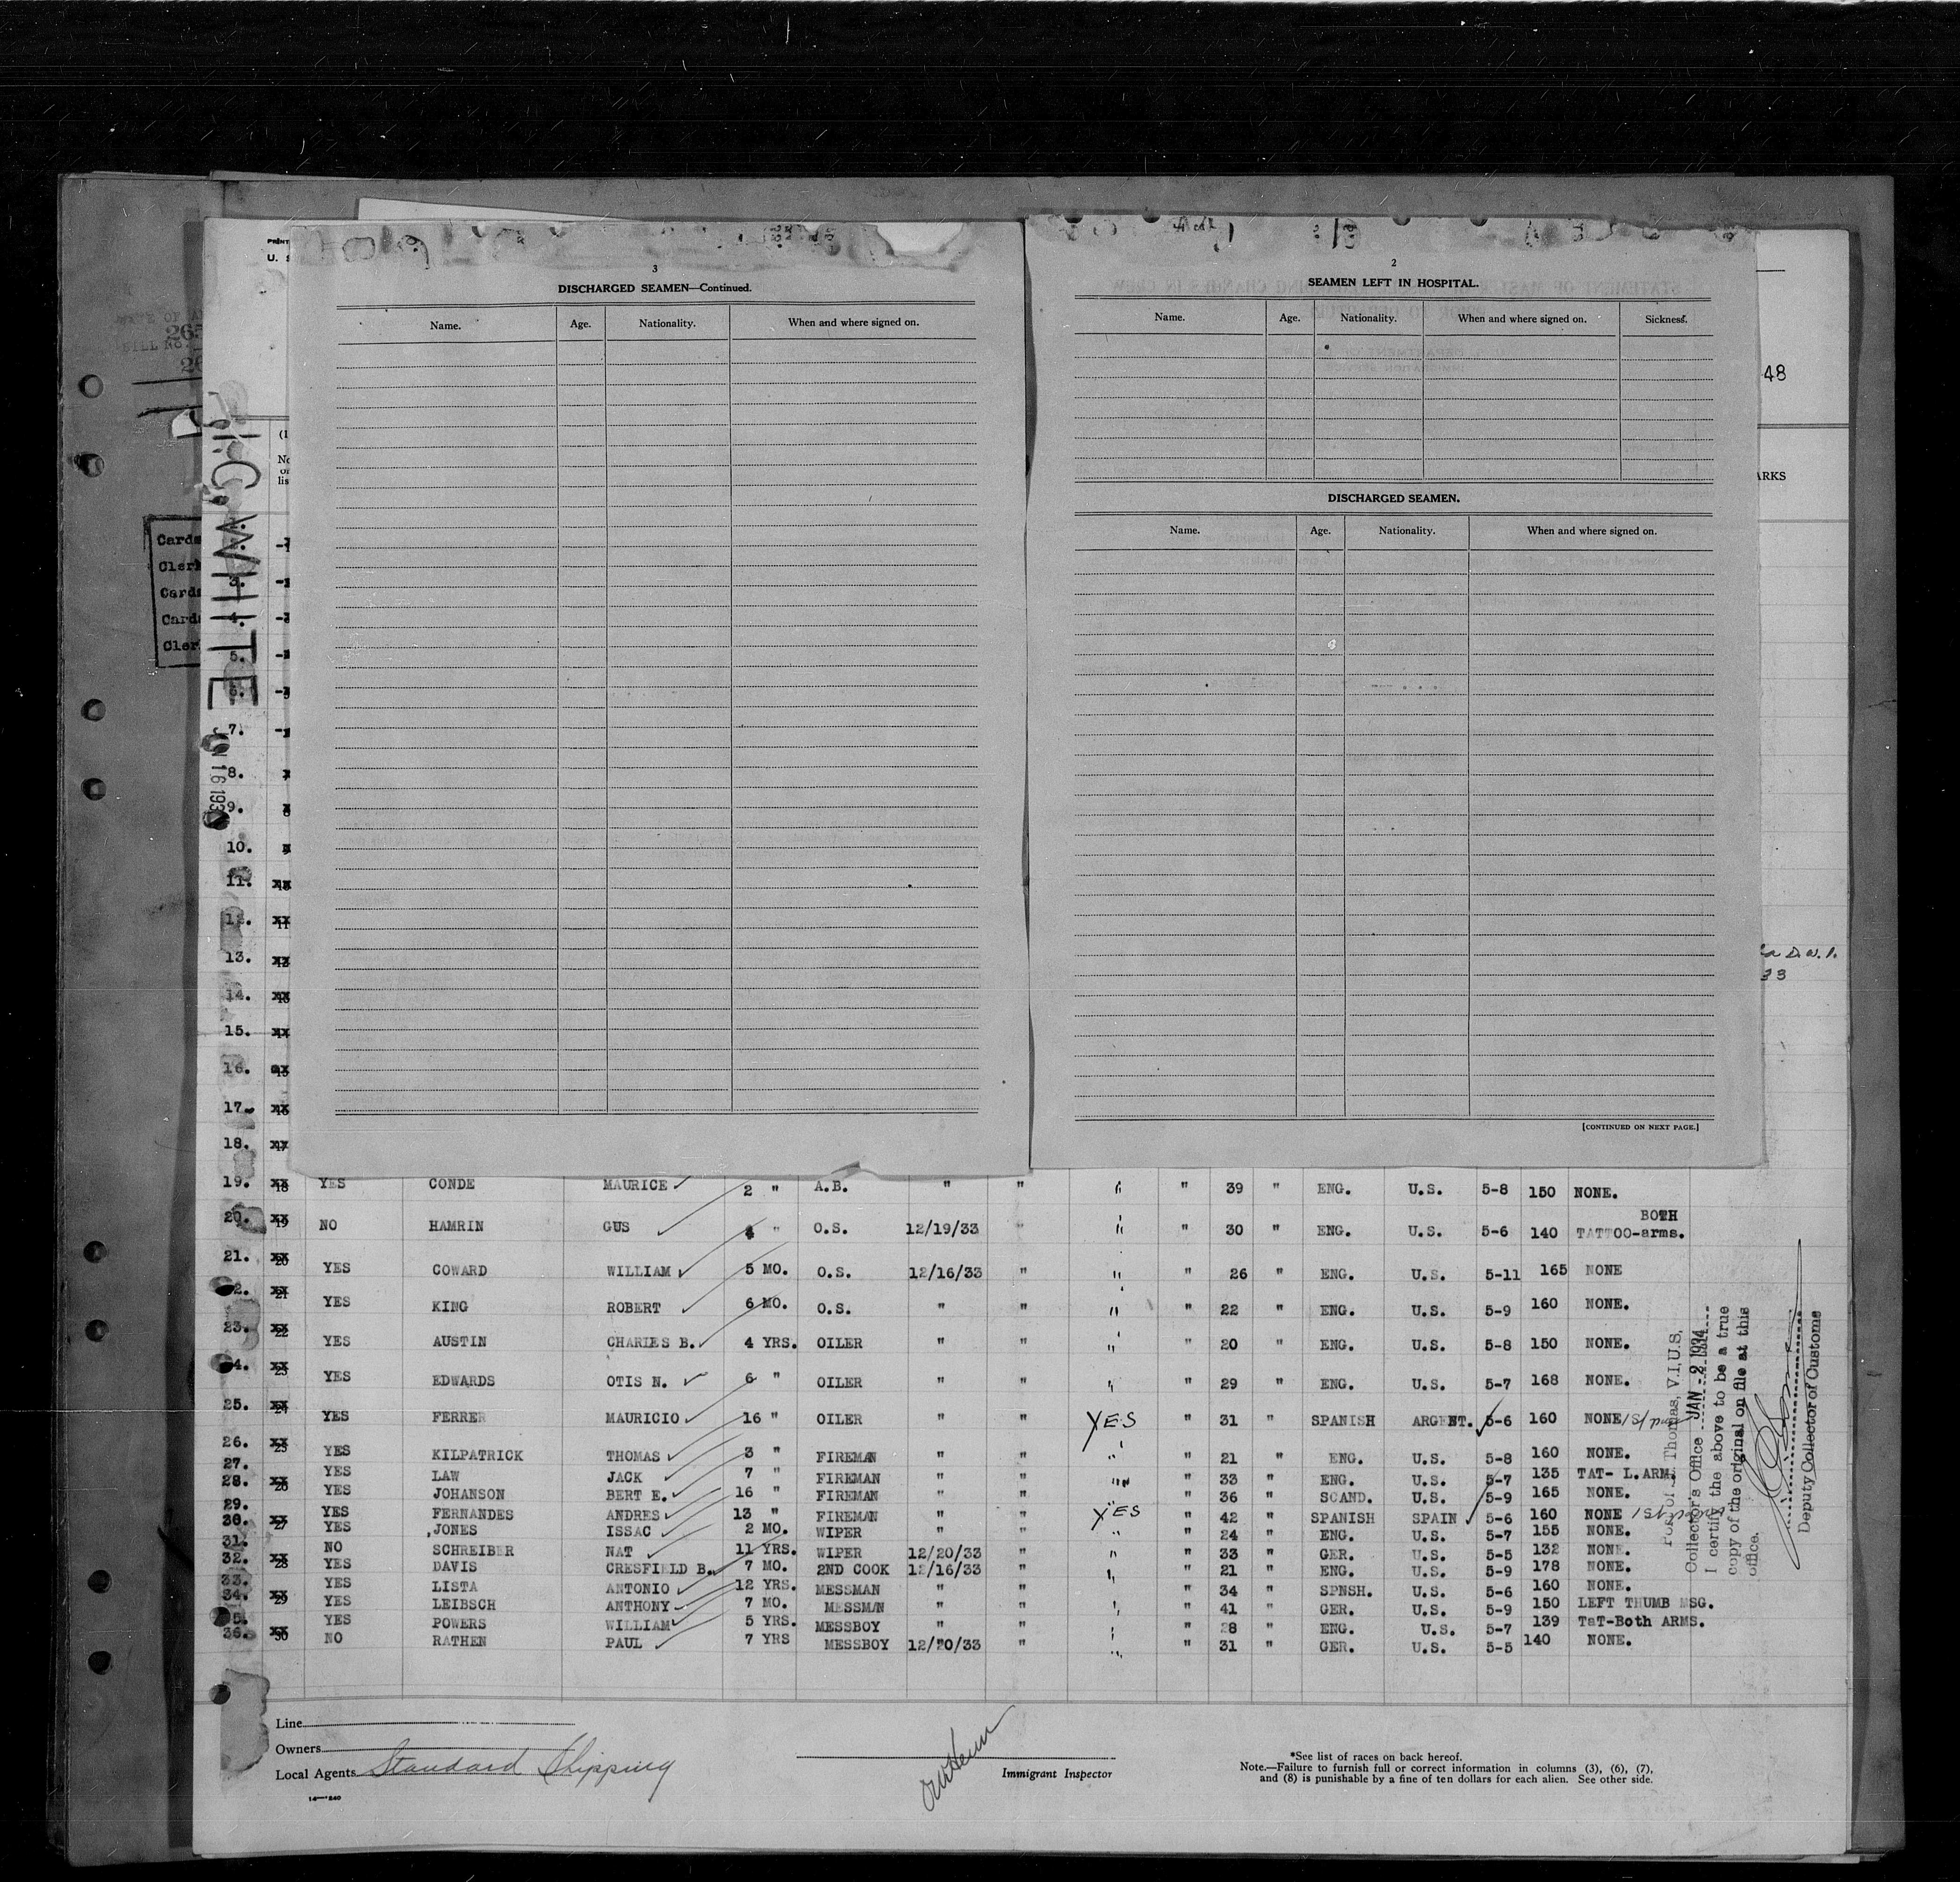 3
DISCHARGED SEAMEN—Continued.
Name. Age. Nationality. When and where signed on.
2
SEAMEN LEFT IN HOSPITAL.
Name. Age. Nationality. When and where signed on. Sickness.
DISCHARGED SEAMEN.
Name. Age. Nationality. When and where signed on.
[CONTINUED ON NEXT PAGE.]
48
ARKS
Cards
Clerk
Cards
Cards
Cler
I.C. WHITE
3.
5.
6.
7.
8.
9.
10.
11.
12.
13.
14.
15.
16.
17.
18.
19. 18 YES CONDE MAURICE 2 " A.B. " " " " 39 " ENG. U.S. 5-8 150 NONE.
20. 19 NO HAMRIN GUS 4 " O.S. 12/19/33 " " " 30 " ENG. U.S. 5-6 140 BOTH TATTOO-arms.
21. 20 YES COWARD WILLIAM 5 MO. O.S. 12/16/33 " " " 26 " ENG. U.S. 5-11 165 NONE
22. 21 YES KING ROBERT 6 MO. O.S. " " " " 22 " ENG. U.S. 5-9 160 NONE.
23. 22 YES AUSTIN CHARLES B. 4 YRS. OILER " " " " 20 " ENG. U.S. 5-8 150 NONE.
24. 23 YES EDWARDS OTIS N. 6 " OILER " " " " 29 " ENG. U.S. 5-7 168 NONE.
25. 24 YES FERRER MAURICIO 16 " OILER " " YES " 31 " SPANISH ARGENT. 5-6 160 NONE
26. 25 YES KILPATRICK THOMAS 3 " FIREMAN " " " " 21 " ENG. U.S. 5-8 160 NONE.
27. YES LAW JACK 7 " FIREMAN " " " " 33 " ENG. U.S. 5-7 135 TAT- L.ARM.
28. 26 YES JOHANSON BERT E. 16 " FIREMAN " " " " 36 " SCAND. U.S. 5-9 165 NONE.
29. YES FERNANDES ANDRES 13 " FIREMAN " " YES " 42 " SPANISH SPAIN 5-6 160 NONE
30. 27 YES JONES ISSAC 2 MO. WIPER " " " " 24 " ENG. U.S. 5-7 155 NONE.
31. NO SCHREIBER NAT 11 YRS. WIPER 12/20/33 " " " 33 " GER. U.S. 5-5 132 NONE.
32. 28 YES DAVIS CRESFIELD B. 7 MO. 2ND COOK 12/16/33 " " " 21 " ENG. U.S. 5-9 178 NONE.
33. YES LISTA ANTONIO 12 YRS. MESSMAN " " " " 34 " SPNSH. U.S. 5-6 160 NONE.
34. 29 YES LEIBSCH ANTHONY 7 MO. MESSMAN " " " " 41 " GER. U.S. 5-9 150 LEFT THUMB MSG.
35. YES POWERS WILLIAM 5 YRS. MESSBOY " " " " 28 " ENG. U.S. 5-7 139 TaT-Both ARMS.
36. 30 NO RATHEN PAUL 7 YRS MESSBOY 12/20/33 " " " 31 " GER. U.S. 5-5 140 NONE.
Port of St. Thomas, V.I.U.S.
Collector's Office JAN - 2 1934
I certify the above to be a true
copy of the original on file at this
office.
Deputy Collector of Customs
Line
Owners
Local Agents Standard Shipping
14—1240
Immigrant Inspector
*See list of races on back hereof.
Note.—Failure to furnish full or correct information in columns (3), (6), (7),
and (8) is punishable by a fine of ten dollars for each alien. See other side.